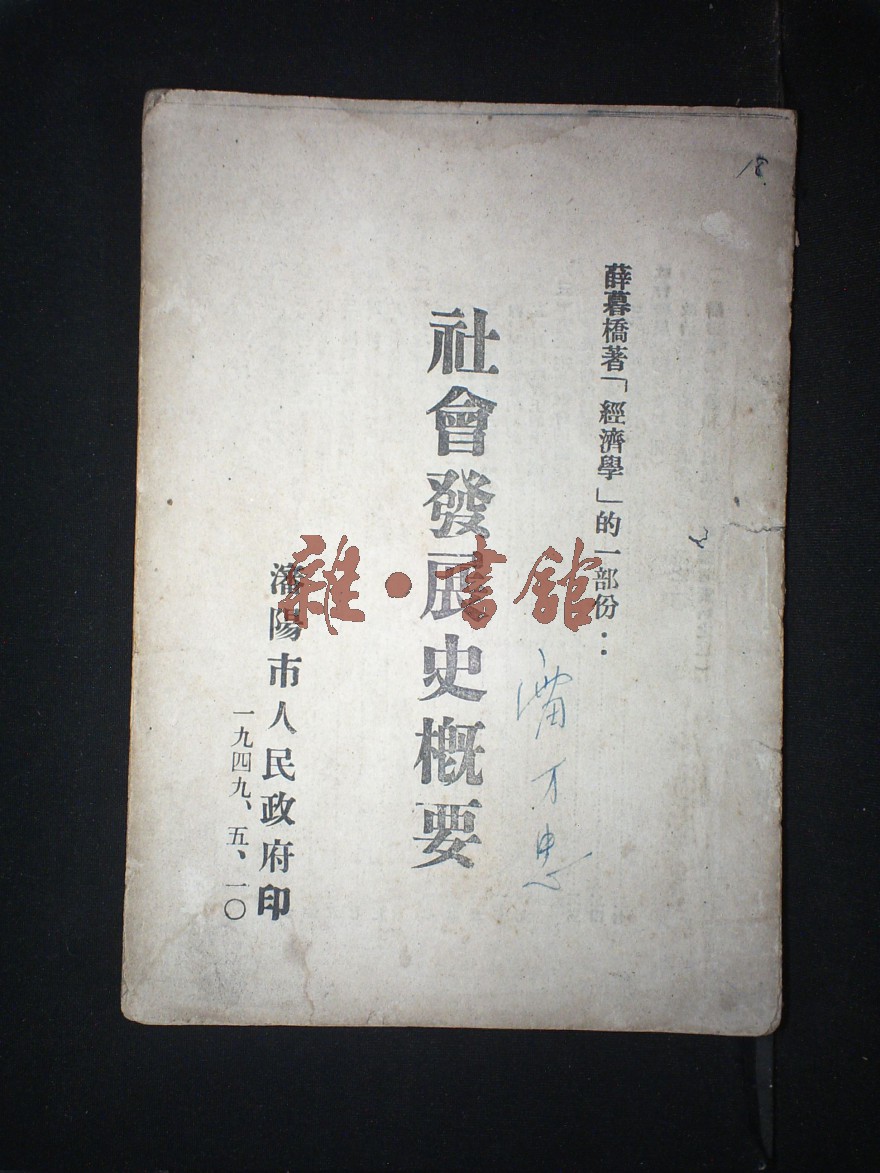 18
薛暮橋著「經濟學」的一部份：
社會發展史概要
瀋陽市人民政府印
一九四九、五、一〇
雜·書館